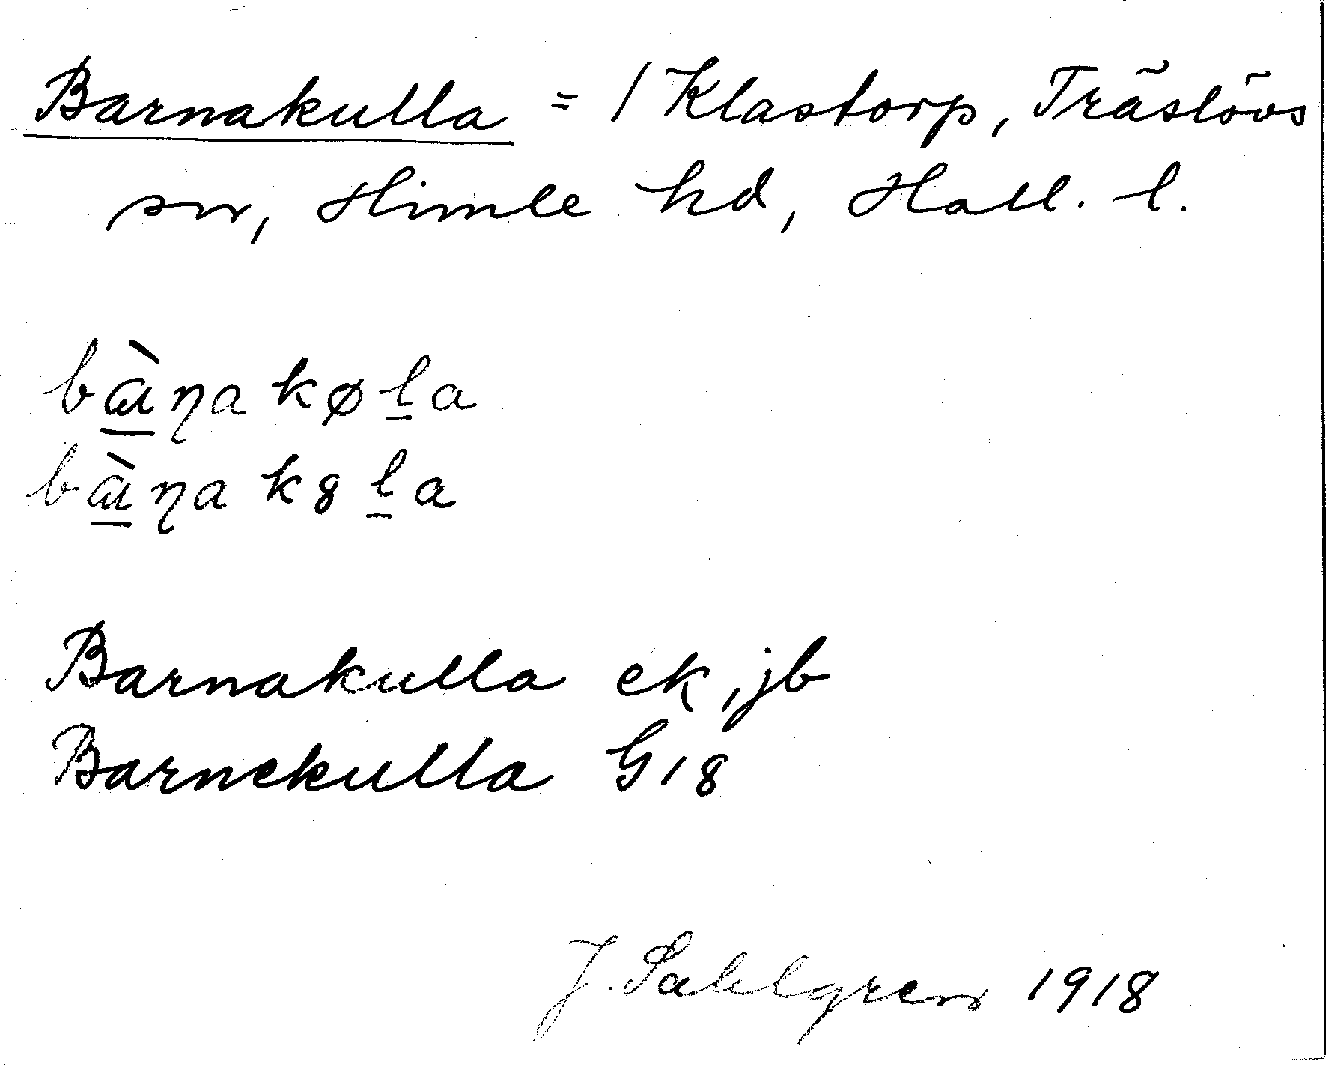 Barnakulla = 1 Klastorp, Träslövs
sn, Himle hd, Hall. l.
bɑ̀ɳa køḻa
bɑ̀ɳa k8ḻa
Barnakulla ek, jb
Barnekulla G18
J. Sahlgren 1918